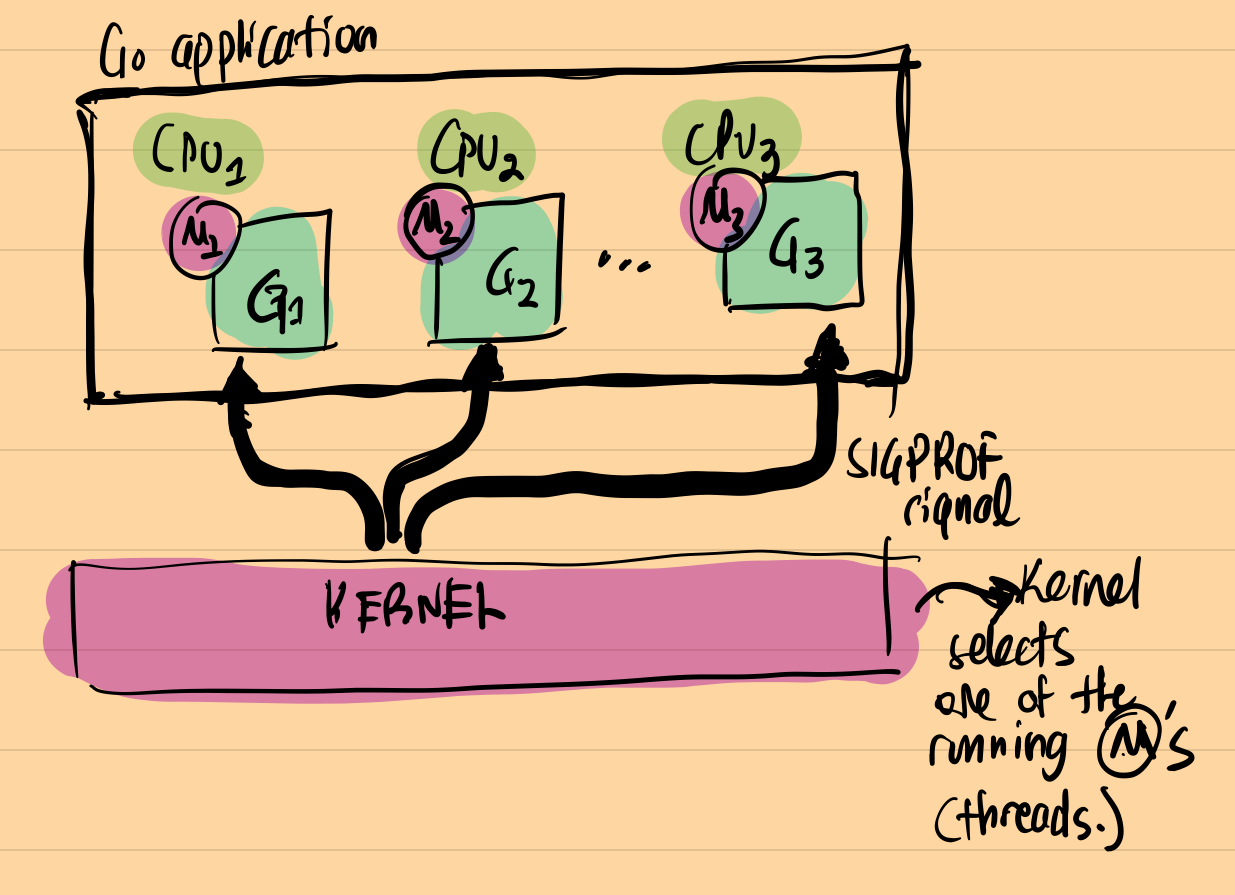 Go application
CPU1 CPU2 CPU3
M1 M2 M3
G1 G2 ... G3
SIGPROF
signal
KERNEL
Kernel
selects
one of the
running M's
(threads.)